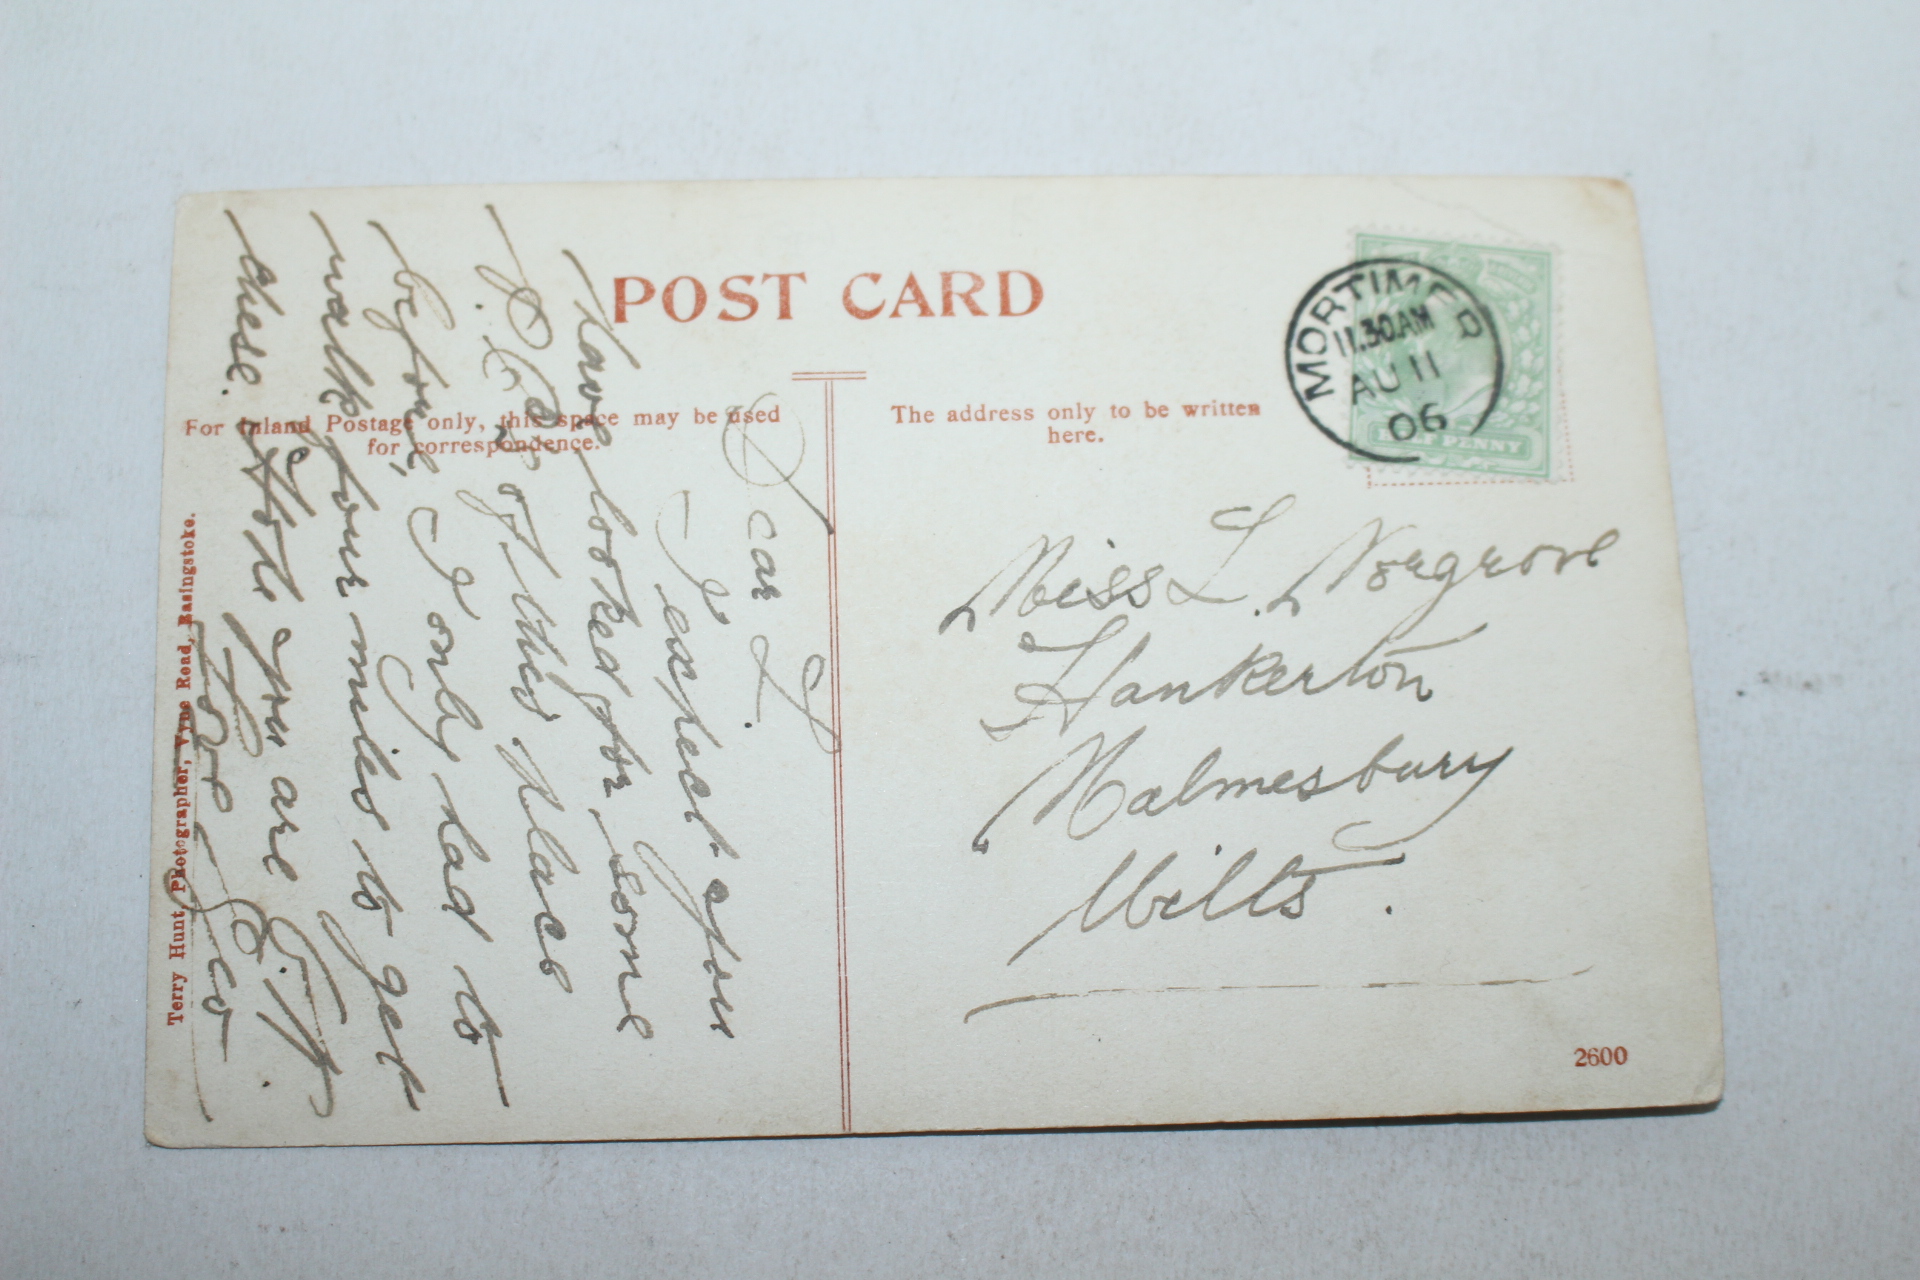 POST CARD
For Inland Postage only, this space may be used
for correspondence.
The address only to be written
here.
MORTIMER
11.30AM
AU 11
06
HALF PENNY
Dear L.
I expect you
have looked for some
P.C.s of this place
before, I only had to
walk four miles to get
these. Hope you are
Miss L. Norgrove
Hankerton
Malmesbury
Wilts.
Terry Hunt, Photographer, Vyne Road, Basingstoke.
2600